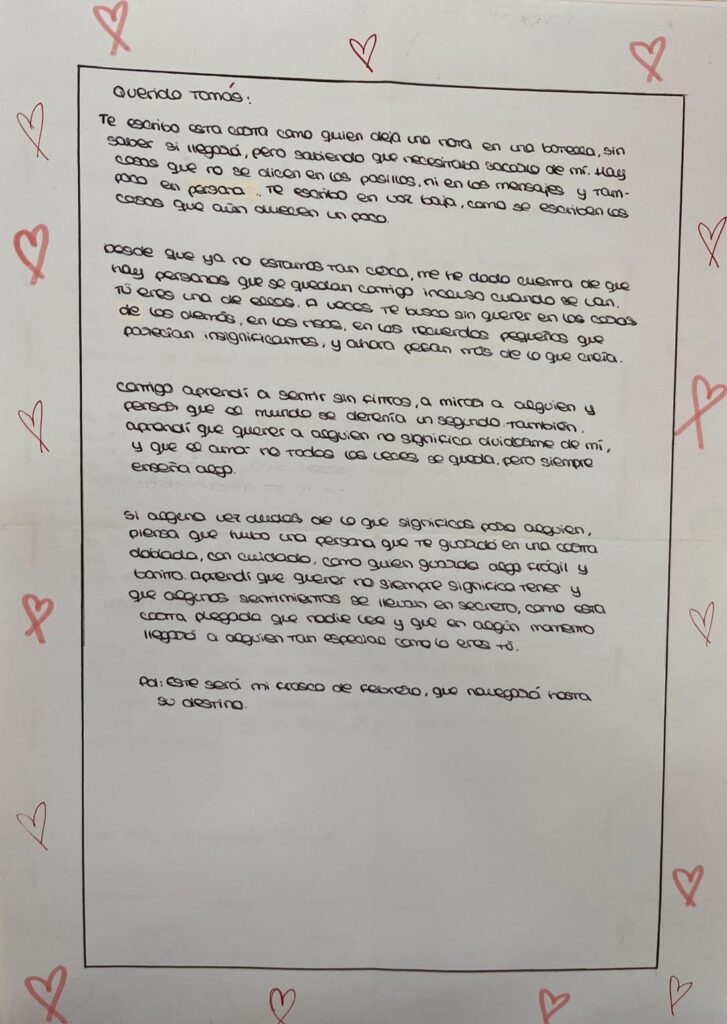 Querido Tomás:
Te escribo esta carta como quien deja una nota en una botella, sin
saber si llegará, pero sabiendo que necesitaba sacarlo de mí. Hay
cosas que no se dicen en los pasillos, ni en los mensajes y tam-
poco en persona. Te escribo en voz baja, como se escriben las
cosas que aún duelen un poco.
Desde que ya no estamos tan cerca, me he dado cuenta de que
hay personas que se quedan contigo incluso cuando se van.
Tú eres una de ellas. A veces te busco sin querer en las cosas
de los demás, en las risas, en los recuerdos pequeños que
parecían insignificantes, y ahora pesan más de lo que creía.
Contigo aprendí a sentir sin filtros, a mirar a alguien y
pensar que el mundo se detenía un segundo. También,
aprendí que querer a alguien no significa olvidarme de mí,
y que el amor no todas las veces se queda, pero siempre
enseña algo.
Si alguna vez dudas de lo que significas para alguien,
piensa que hubo una persona que te guardó en una carta
doblada, con cuidado, como quien guarda algo frágil y
bonito. Aprendí que querer no siempre significa tener y
que algunos sentimientos se llevan en secreto, como esta
carta plegada que nadie lee y que en algún momento
llegará a alguien tan especial como lo eres tú.
Pd: Este será mi frasco de febrero, que navegará hasta
su destino.